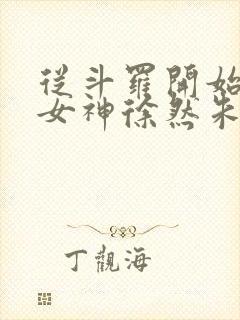 從斗羅開始
女神徐然朱
丁觀海